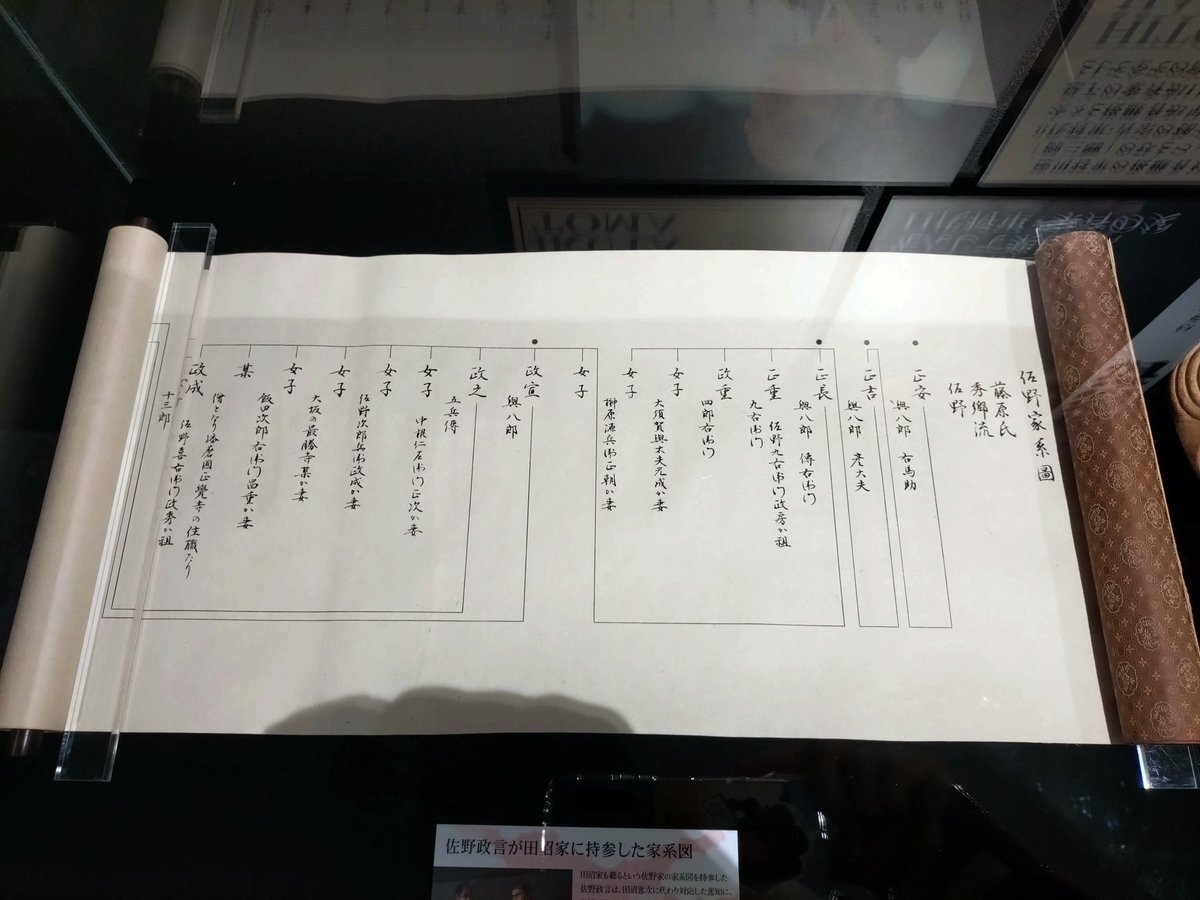 佐野家系圖
藤原氏
秀郷流
佐野
正安
與八郎 右馬助
正吉
與八郎 彦大夫
正長
與八郎 傳右衛門
正重
佐野九右衛門政房か祖
九右衛門
政重
四郎右衛門
女子
大須賀與大夫元成か妻
女子
榊原源兵衛正朝か妻
女子
政宣
與八郎
政之
五兵傳
女子
中根仁左衛門正次か妻
女子
佐野次郎兵衛政成か妻
女子
大坂最勝寺某か妻
女子
飯田次郎右衛門昌重か妻
某
僧となり 國正覺寺の住職たり
政成
佐野喜右衛門政秀か祖
十三郎
佐野政言が田沼家に持参した家系図
田沼家も載るという佐野家の家系図を持参した
佐野政言は、田沼意次に代わり対応した意知に、